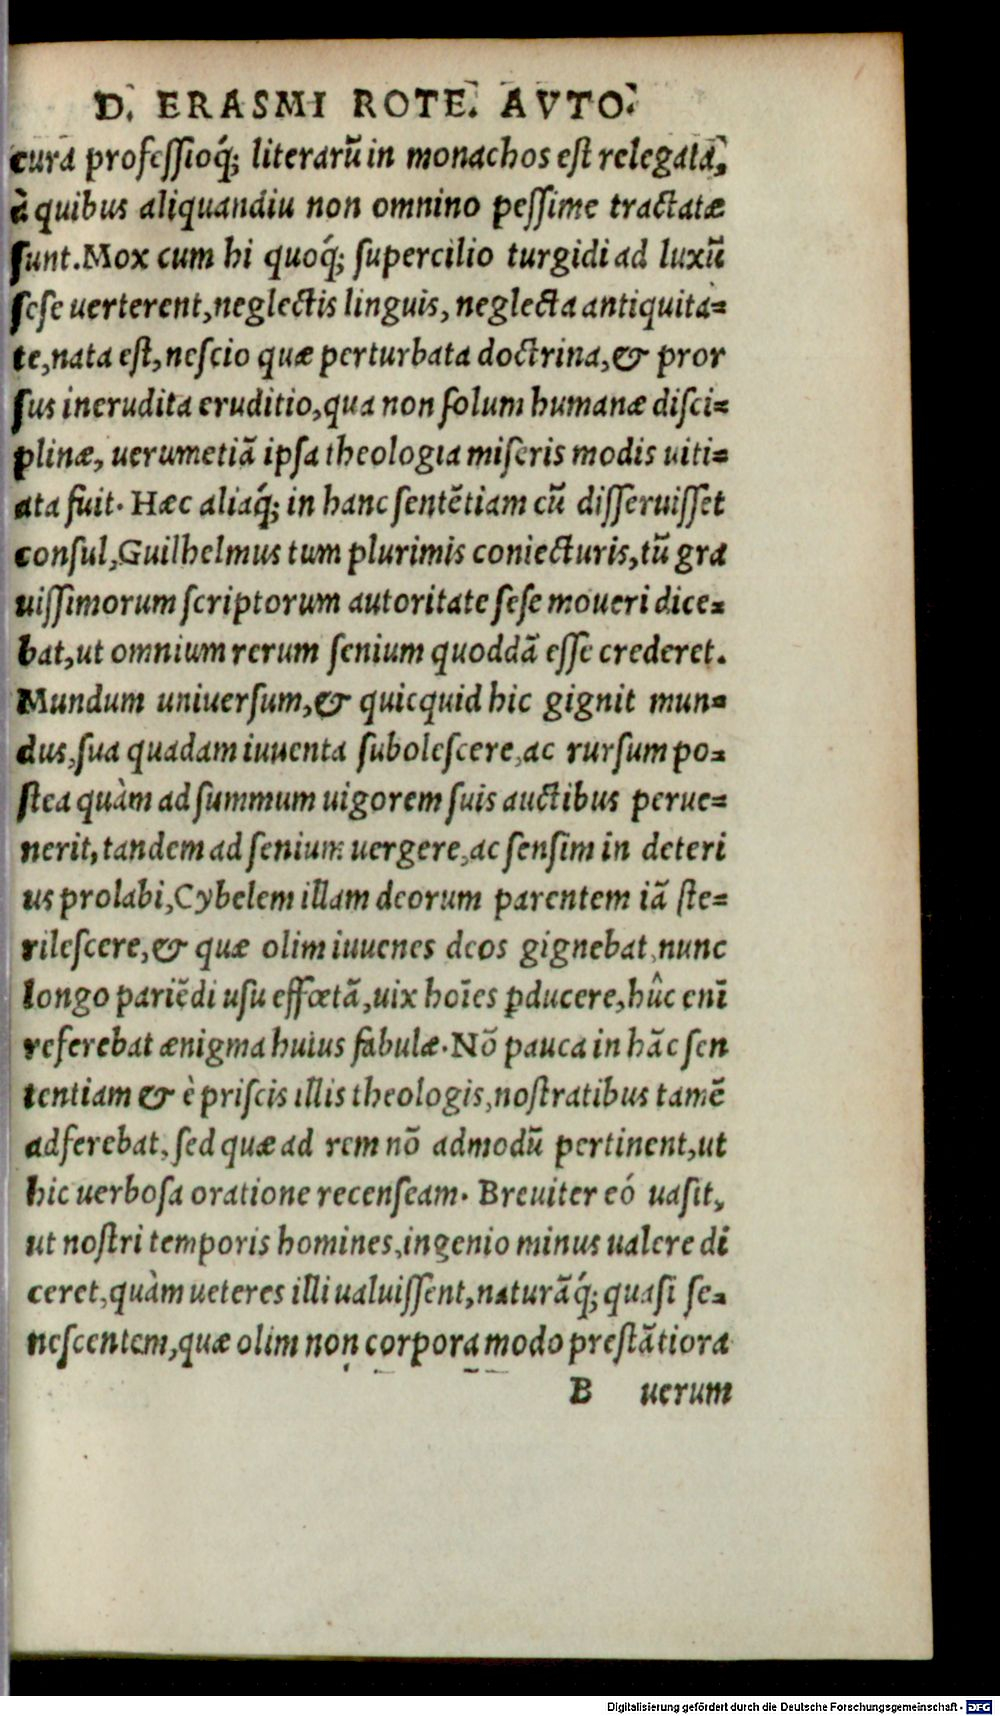 D. ERASMI ROTE. AVTO.
cura professioq́; literarũ in monachos est relegata,
à quibus aliquandiu non omnino pessime tractatæ
sunt. Mox cum hi quoq́; supercilio turgidi ad luxũ
sese uerterent, neglectis linguis, neglecta antiquita=
te, nata est, nescio quæ perturbata doctrina, & pror
sus inerudita eruditio, qua non solum humanæ disci=
plinæ, uerumetiã ipsa theologia miseris modis uiti=
ata fuit. Hæc aliaq́; in hanc sentẽtiam cũ disseruisset
consul, Guilhelmus tum plurimis coniecturis, tũ gra
uissimorum scriptorum autoritate sese moueri dice=
bat, ut omnium rerum senium quoddã esse crederet.
Mundum uniuersum, & quicquid hic gignit mun=
dus, sua quadam iuuenta subolescere, ac rursum po=
stea quàm ad summum uigorem suis auctibus perue=
nerit, tandem ad senium uergere, ac sensim in deteri
us prolabi, Cybelem illam deorum parentem iã ste=
rilescere, & quæ olim iuuenes deos gignebat, nunc
longo pariẽdi usu effœtã, uix hoĩes ꝑducere, hûc enĩ
referebat ænigma huius fabulæ. Nõ pauca in hãc sen
tentiam & è priscis illis theologis, nostratibus tamẽ
adferebat, sed quæ ad rem nõ admodũ pertinent, ut
hic uerbosa oratione recenseam. Breuiter eó uasit,
ut nostri temporis homines, ingenio minus ualere di
ceret, quàm ueteres illi ualuissent, naturãq́; quasi se=
nescentem, quæ olim non corpora modo prestãtiora
B uerum
Digitalisierung gefördert durch die Deutsche Forschungsgemeinschaft - DFG